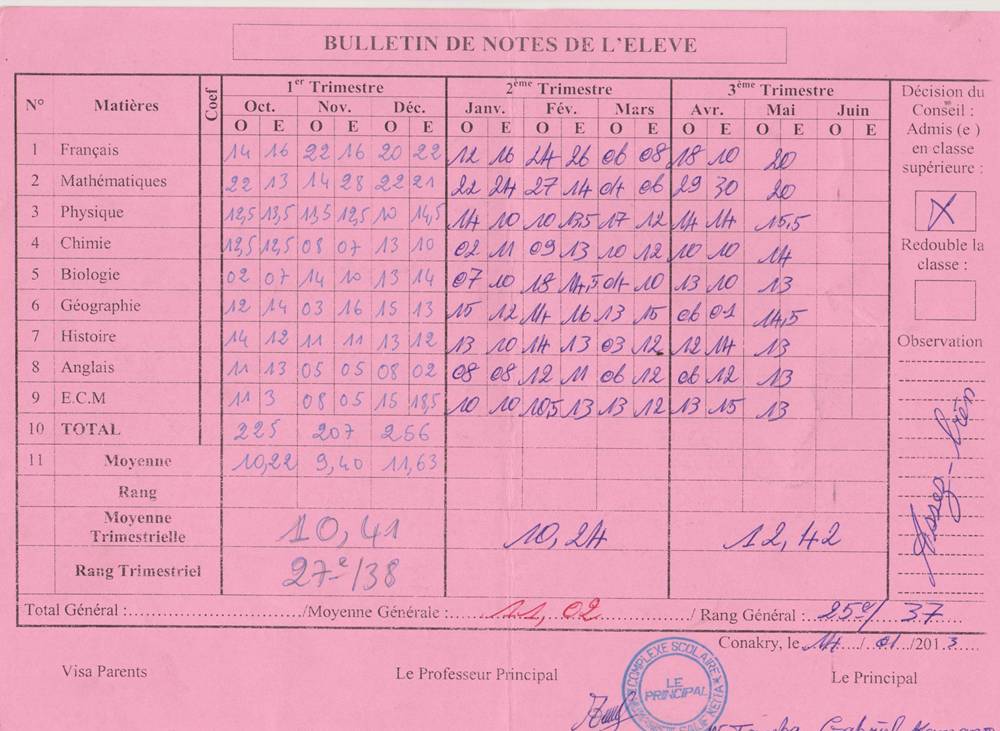 BULLETIN DE NOTES DE L'ELEVE
N° Matières Coef 1er Trimestre 2ème Trimestre 3ème Trimestre Décision du Conseil : Admis (e) en classe supérieure : X
Oct. Nov. Déc. Janv. Fév. Mars Avr. Mai Juin
O E O E O E O E O E O E O E O E O E
1 Français 14 16 22 16 20 22 12 16 24 26 06 08 18 10 20
2 Mathématiques 22 13 14 28 22 21 22 24 27 14 04 06 29 30 20
3 Physique 12,5 13,5 11,5 12,5 10 14,5 14 10 10 13,5 17 12 14 14 15,5
4 Chimie 12,5 12,5 08 07 13 10 02 11 09 13 10 12 10 10 14
5 Biologie 02 07 14 10 13 14 07 10 18 14,5 04 10 13 10 13
6 Géographie 12 14 03 16 15 13 15 12 14 16 13 15 06 01 14,5
7 Histoire 14 12 11 11 13 12 13 10 14 13 03 12 12 14 13
8 Anglais 11 13 05 05 08 02 08 08 12 11 06 12 06 12 13
9 E.C.M 11 3 08 05 15 18,5 10 10 10,5 13 13 12 13 15 13
10 TOTAL 225 207 256
11 Moyenne 10,22 9,40 11,63
Rang
Moyenne Trimestrielle 10,41 10,24 12,42
Rang Trimestriel 27e/38
Redouble la classe :
Observation
Assez-bien
Total Général :................/Moyenne Générale :...11,02.../ Rang Général :..25e/ 37
Conakry, le 14/01/2013
Visa Parents Le Professeur Principal Le Principal
COMPLEXE SCOLAIRE
LE PRINCIPAL
KEITA
Gabriel